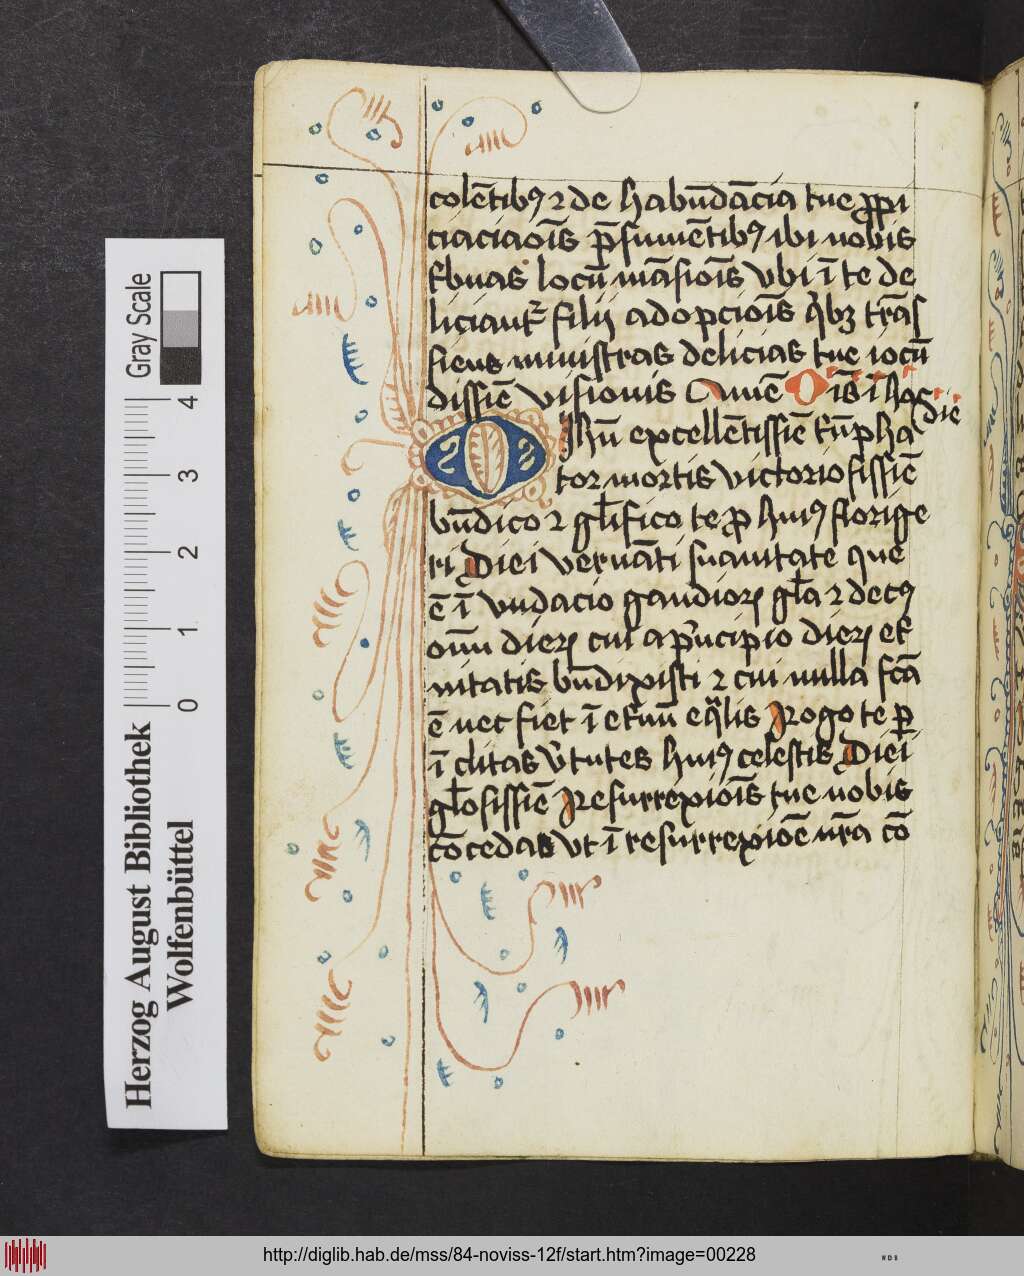 colētibꝰ ⁊ de habūdācia tue ꝓpi
ciaciaōis p̄sumētibꝰ ibi nobis
t͛buas locū māsiois vbi ī te de
liciant͛ filij adopcioīs q̇bꝫ trās
fiens ministras delicias tue iocū
dissiē visionis Amē Oīs ī hoc die
O Ihū excellētissiē t͛ūpha
tor mortis victoriosissiē
bn̄dico ⁊ gl̄ifico te ꝓ huiꝰ florige
ri Diei vernāti suauitate que
ē ī vndacio gaudioꝝ gl̄a ⁊ decꝰ
oīm dieꝝ cui a pͥncipio dieꝝ et͛
nitatis bn̄dixisti ⁊ cui nulla scā
ē nec fiet ī et͛nū eq̈lis Rogo te ꝑ
īclitas v͛tutes huiꝰ celestis Diei
gl̄osissiē Resurrexioīs tue nobis
cōcedas vt ī resurrexiōe nr̄a cō
Herzog August Bibliothek
Wolfenbüttel
0 1 2 3 4
Gray Scale
http://diglib.hab.de/mss/84-noviss-12f/start.htm?image=00228